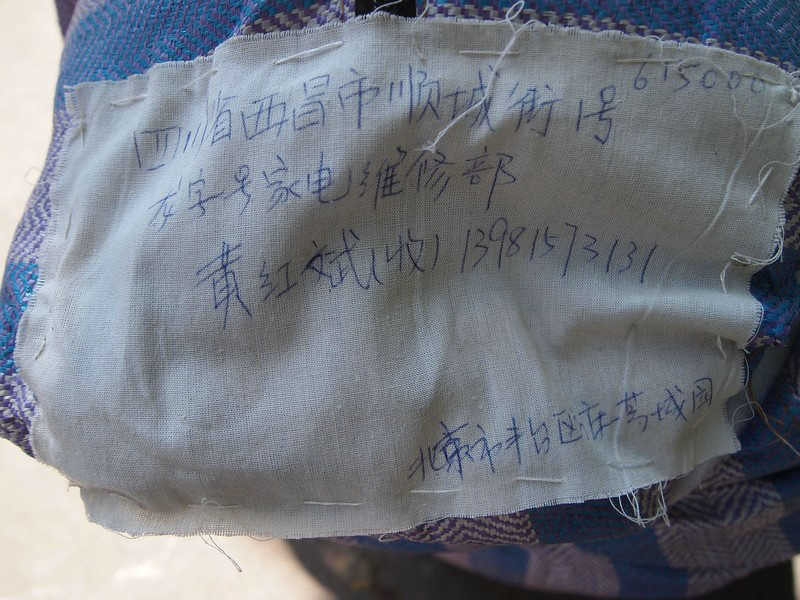 615000
四川省西昌市顺城街1号
友字号家电维修部
黄红斌(收) 13981573131
北京市丰台区庄芳城园